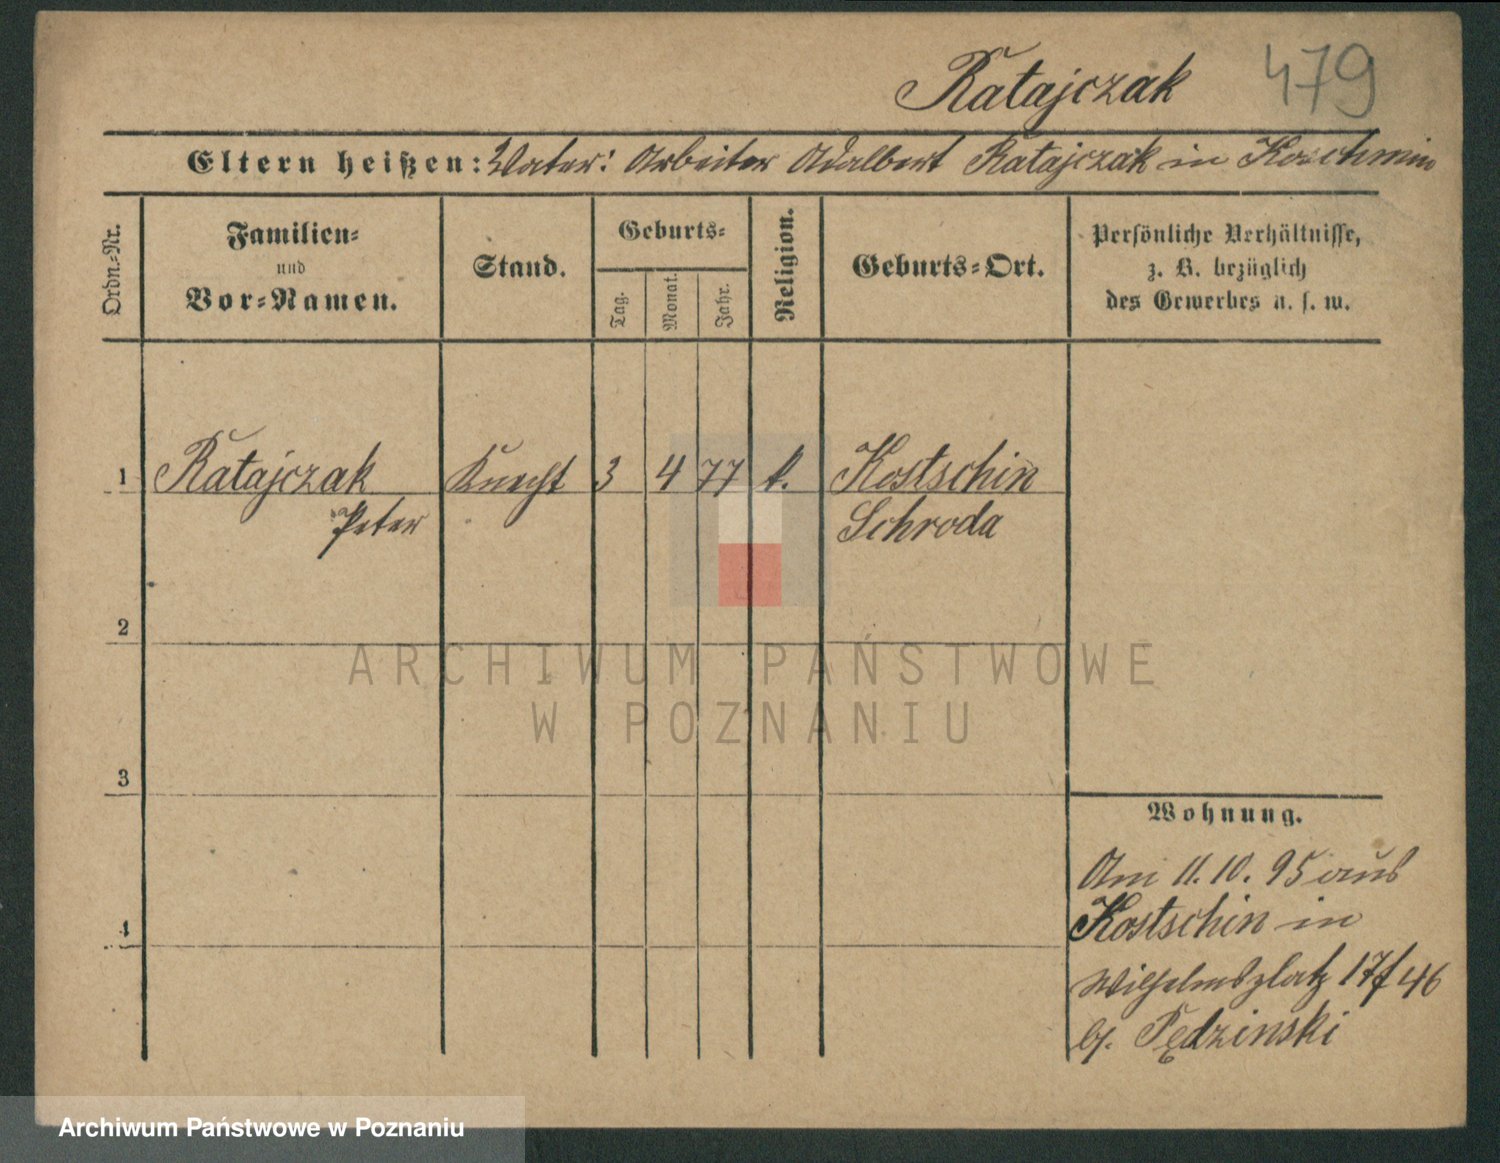 Ratajczak 479
Eltern heißen: Vater: Arbeiter Adalbert Ratajczak in Koschmin
Ordn.-Nr.
Familien-
und
Vor-Namen.
Stand.
Geburts-
Tag.
Monat.
Jahr.
Religion.
Geburts-Ort.
Persönliche Verhältnisse,
z. B. bezüglich
des Gewerbes u. s. w.
1 Ratajczak Knecht 3 4 77 k. Kostschin
Peter Schroda
2
3
4
Wohnung.
Am 11. 10. 95 aus
Kostschin in
Wilhelmsplatz 17/46
bj. Pędzinski
ARCHIWUM PAŃSTWOWE
W POZNANIU
Archiwum Państwowe w Poznaniu